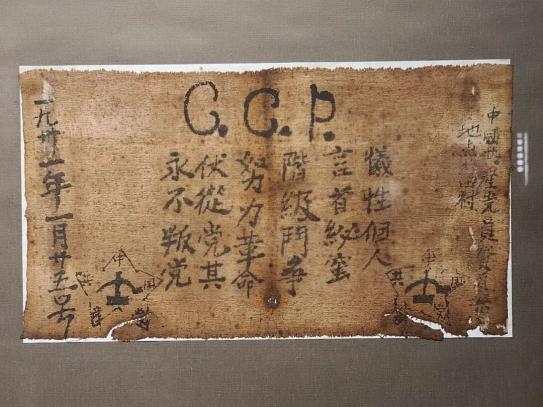 C.C.P.
中國共產党員
地点 村
犠牲個人
言首紗蜜
階級鬥争
努力革命
伏從党其
永不叛党
一九卅一年一月廿五号
中
共
中
共